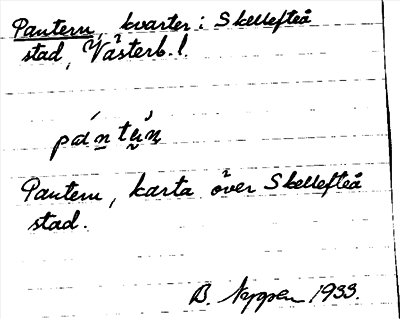 Pantern, kvarter i Skellefteå
stad, Västerb. l.
pántų́n
Pantern, karta över Skellefteå
stad.
B. Nygren 1933.